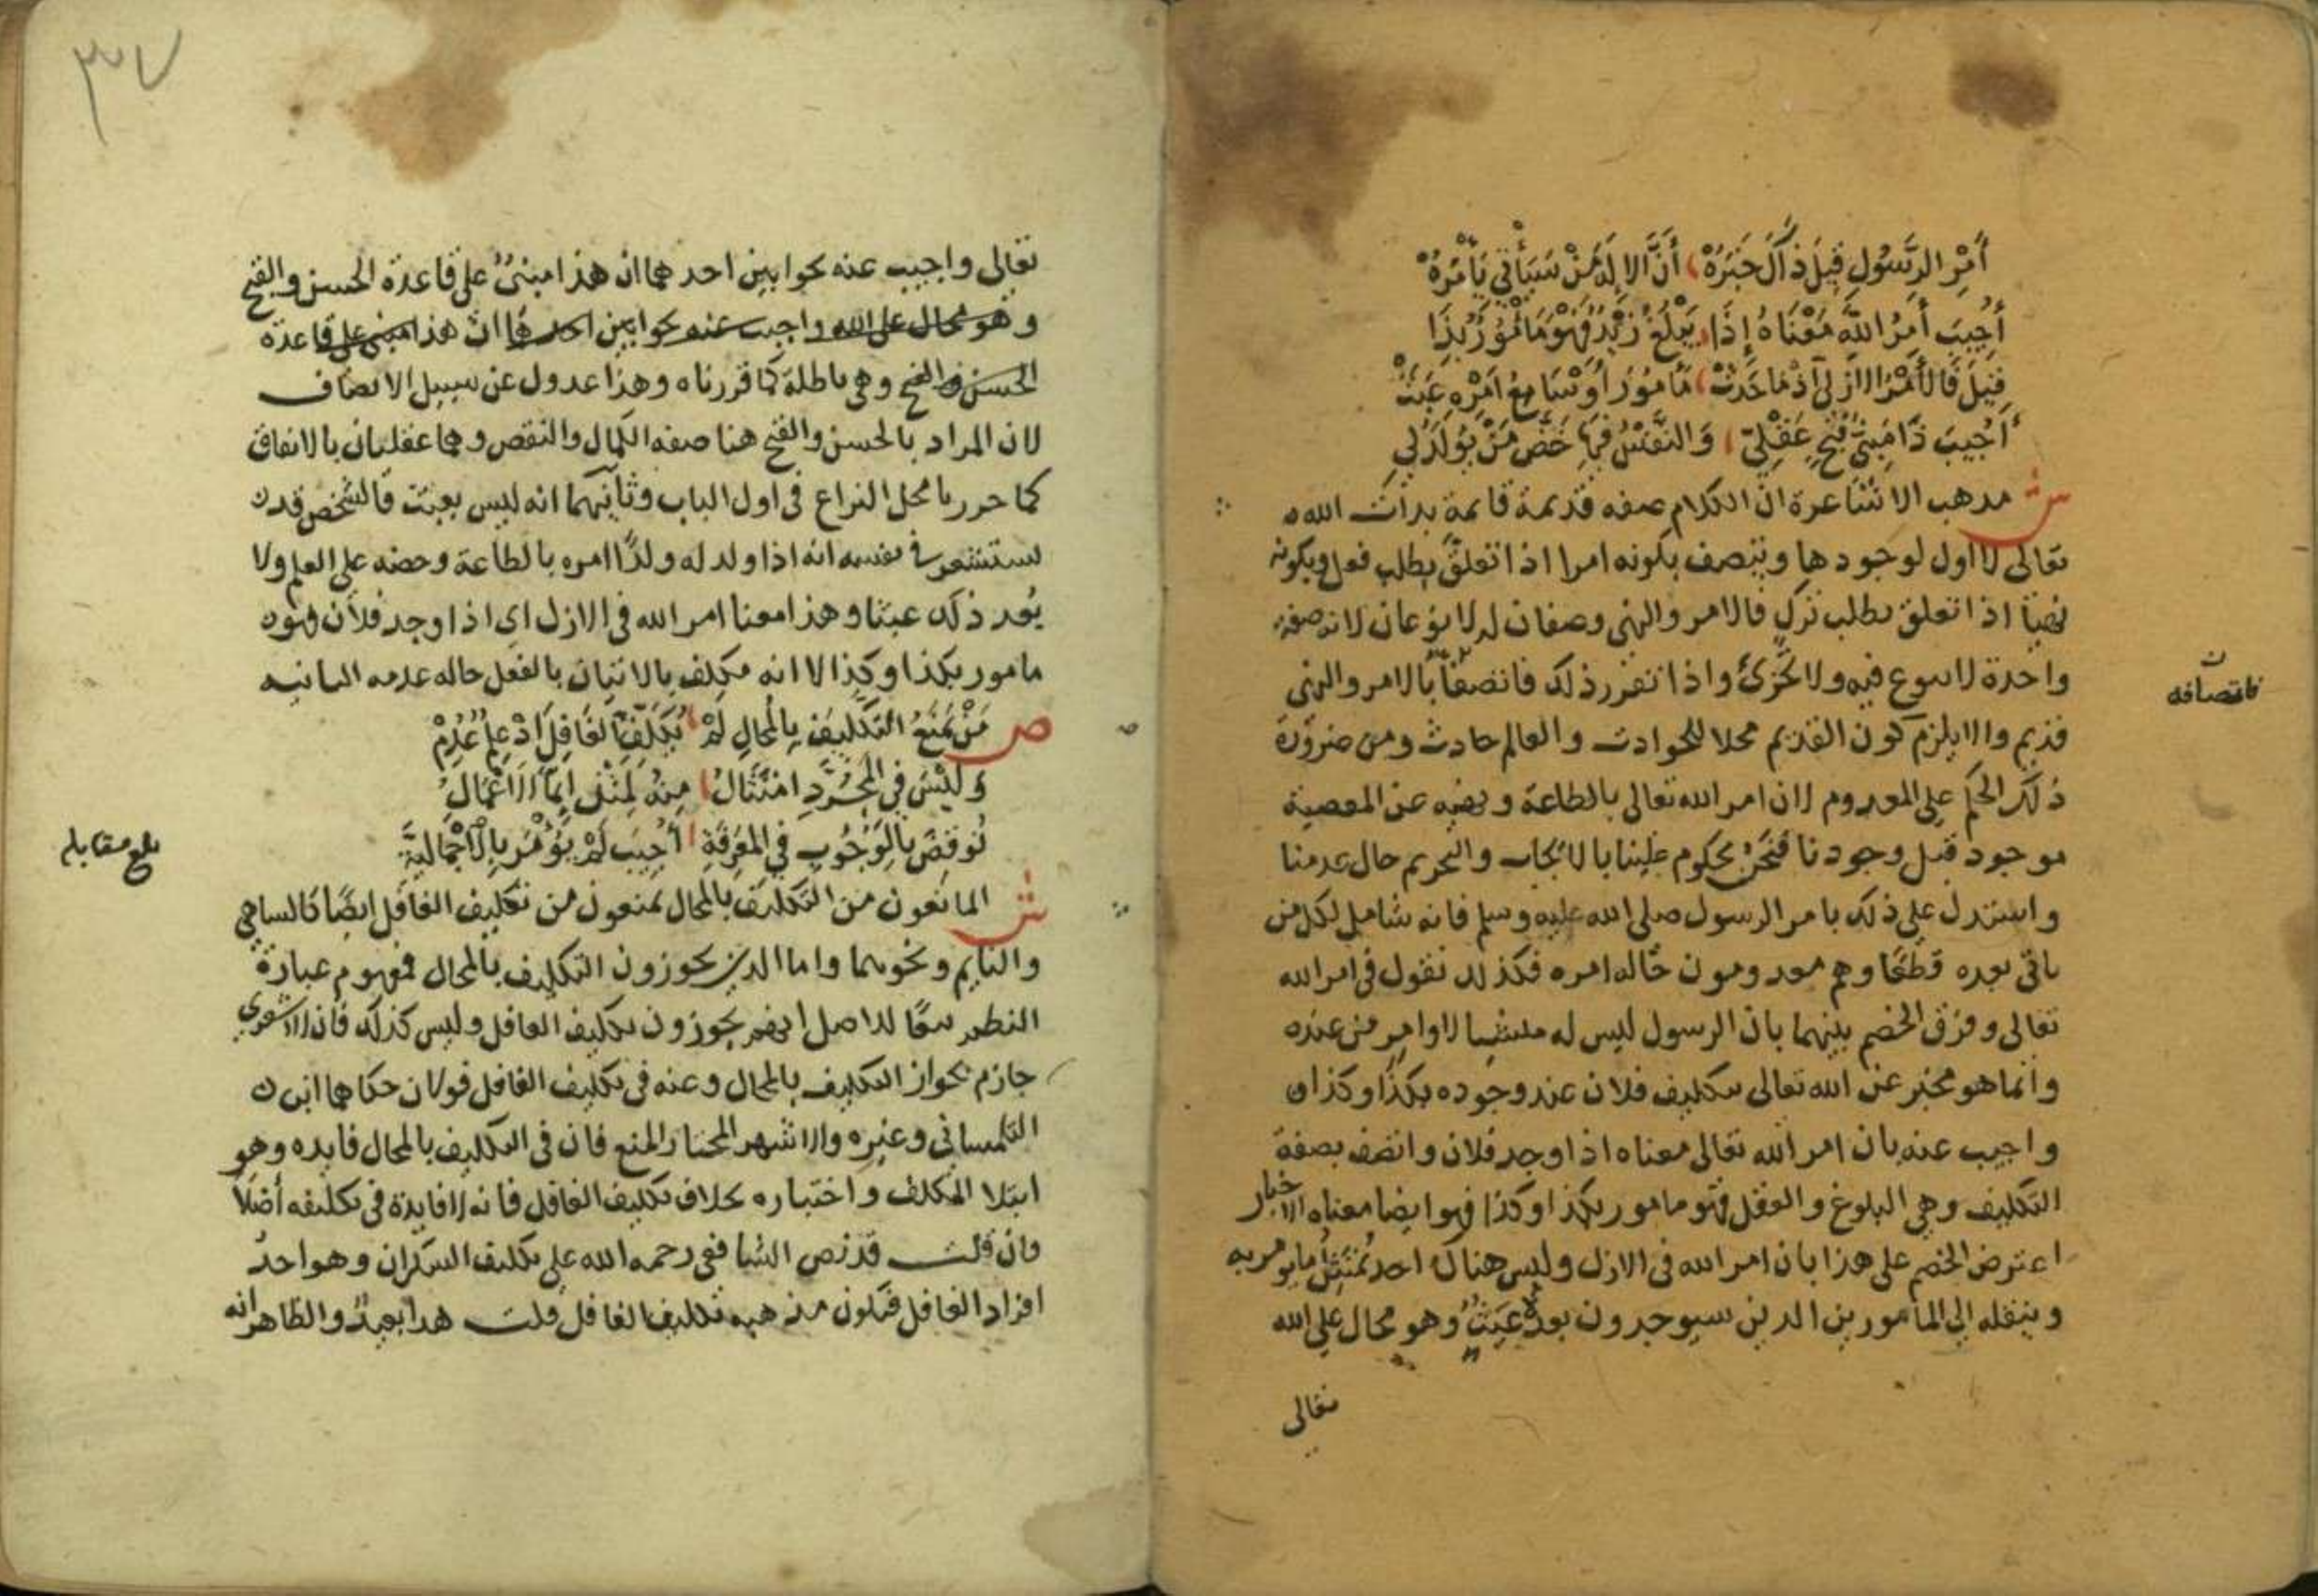 أَمْرُ الرَّسُولِ قِيلَ ذَا كَالخَبَرَهْ أَنَّ الإلَهَ مَنْ سَيَأْتِي يَأْمُرُهْ
أُجِيبَ أَمْرُ اللَّهِ مَعْنَاهُ إِذَا يَبْلُغُ زَيْدٌ فَهْوَ مَأْمُورٌ بِذَا
قِيلَ فَالأَمْرُ الازَلِي إذْ مَا حَدَثْ مَأمُورٌ أَوْ سَامِعُ أَمْرِهِ عَبَثْ
أُجِيبَ ذَا مَبْنِيُّ قُبْحٍ عَقْلِيّ وَالنَّفْسُ فِيهَا حَضُّ مَنْ يُولَدُ لِي
ش مذهب الاشاعرة ان الكلام صفه قديمة قايمة بذات الله
تعالى لا اول لوجودها ويتصف بكونه امرا اذا تعلق بطلب فعل وبكونه
نهيا اذا تعلق بطلب ترك فالامر والنهي وصفان له لا نوعان لانه صفة
واحدة لا تنوع فيه ولا تجزئ واذا تقرر ذلك فاتصفا بالامر والنهي
فاتصافه
قديم والا يلزم كون القديم محلا للحوادث والعالم حادث ومن ضرورة
ذلك الحكم على المعدوم لان امر الله تعالى بالطاعة ونهيه عن المعصية
موجود قبل وجودنا فنحن محكوم علينا بالايجاب والتحريم حال عدمنا
واستدل على ذلك بامر الرسول صلى الله عليه وسلم فانه شامل لكل من
ياتي بعده قطعا وهم معدومون حاله امره فكذلك نقول في امر الله
تعالى وفرق الخصم بينهما بان الرسول ليس له منشيا لاوامر من عنده
وانما هو مخبر عن الله تعالى بتكليف فلان عند وجوده بكذا وكذا
واجيب عنه بان امر الله تعالى معناه اذا وجد فلان واتصف بصفة
التكليف وهي البلوغ والعقل فهو مامور بكذا وكذا فهو ايضا معناه الاخبار
اعترض الخصم على هذا بان امر الله في الازل وليس هناك احد يمتثل ما يومر به
وينقله الى المامورين الذين سيوجدون بعده عبث وهو محال على الله
تعالى
٣٧
تعالى واجيب عنه بجوابين احدهما ان هذا مبني على قاعدة الحسن والقبح
وهو محال على الله واجيب عنه بجوابين احدهما ان هذا مبني على قاعدة
الحسن والقبح وهي باطلة كما قررناه وهذا عدول عن سبيل الانصاف
لان المراد بالحسن والقبح هنا صفه الكمال والنقص وهما عقليان بالاتفاق
كما حررنا محل النزاع في اول الباب وثانيهما انه ليس بعبث فالشخص قد
يستشعر في نفسه انه اذا ولد له ولدًا امره بالطاعة وحضه على العلم ولا
يُعد ذلك عبثا وهذا معنا امر الله في الازل اي اذا وجد فلان فهو
مامور بكذا وكذا لا انه مكلف بالاتيان بالفعل حاله عدمه
ص مَنْ يَمْنَعُ التَّكْلِيفَ بِالْمُحَالِ لَمْ يُكَلِّفِ الغَافِلَ إذْ عِلْمٌ عُدِمْ
وَلَيْسَ فِي الْمُجَرَّدِ امْتِثَالُ مِنْهُ لِمِثْلِ إِنَّمَا الاَعْمَالُ
نُوقِضَ بِالْوُجُوبِ فِي الْمَعْرِفَةِ أُجِيبَ لَمْ يُؤْمَرْ بِالاجْمَالِيَّةِ
بلغ مقابله
ش المانعون من التكليف بالمحال يمنعون من تكليف الغافل ايضا كالساهي
والنايم ونحوهما واما الذين يجوزون التكليف بالمحال فمفهوم عبارة
النظم تبعا للاصل انهم يجوزون تكليف الغافل وليس كذلك فان الاشعري
جازم بجواز التكليف بالمحال وعنه في تكليف الغافل قولان حكاهما ابن
التلمساني وغيره والاشهر المختار المنع فان في التكليف بالمحال فايده وهو
ابتلا المكلف واختباره بخلاف تكليف الغافل فانه لا فايدة في تكليفه أصلا
فان قلت قد نص الشافعي رحمه الله على تكليف السكران وهو احد
افراد الغافل فتكون مذهبه تكليف الغافل قلت هذا بعيد والظاهر انه